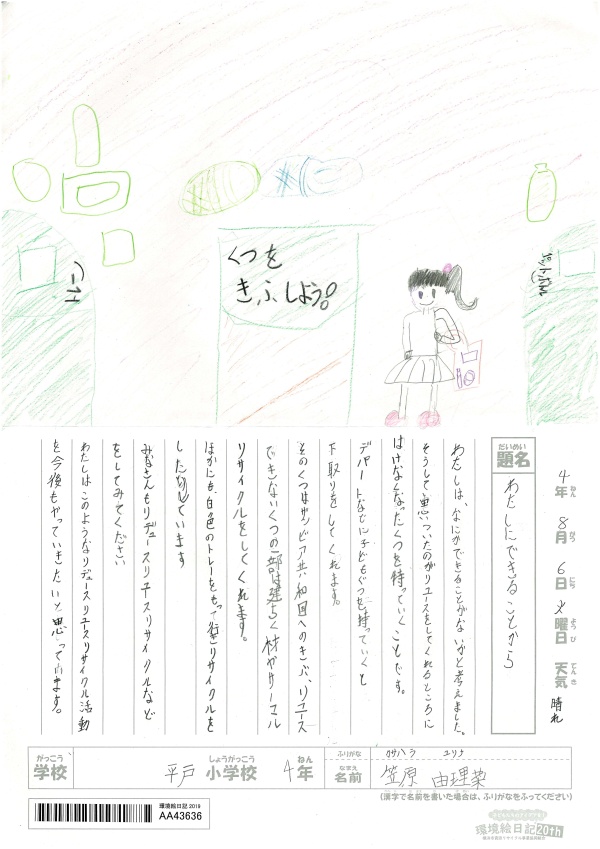 くつを
きふしよう!
トレー
ペットボトル
4年 8月 6日 火曜日 天気 晴れ
ねん がつ にち ようび てんき
だいめい
題名
わたしにできることから
わたしは、なにかできることがないかと考えました。
そうして思いついたのがリユースをしてくれるところに
はけなくなったくつを持っていくことです。
デパートなどに子どもぐつを持っていくと
下取りをしてくれます。
そのくつはザンビア共和国へのきふ、リユース
できないくつの一部は建ちく材やサーマル
リサイクルをしてくれます。
ほかにも、白色のトレーをもって行きリサイクルを
したりしています
みなさんもリデュースリユースリサイクルなど
をしてみてください
わたしはこのようなリデュースリユースリサイクル活動
を今後もやっていきたいと思っています。
がっこう
学校
平戸 小学校 4年
しょうがっこう ねん
ふりがな カサハラ ユリナ
なまえ
名前 笠原 由理菜
(漢字で名前を書いた場合は、ふりがなをふってください)
環境絵日記 2019
AA43636
環境絵日記20th